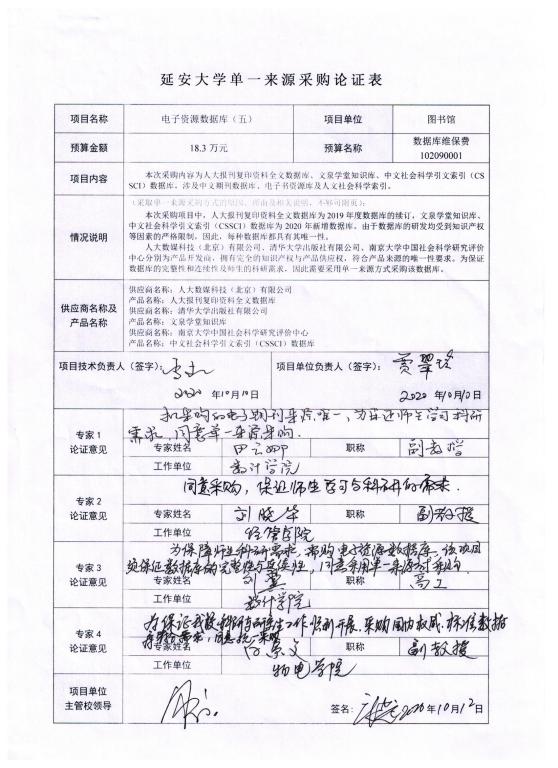 延安大学单一来源采购论证表
项目名称 电子资源数据库（五） 项目单位 图书馆
预算金额 18.3 万元 预算名称 数据库维保费
102090001
项目内容
本次采购内容为人大报刊复印资料全文数据库、文泉学堂知识库、中文社会科学引文索引（CS
SCI）数据库。涉及中文期刊数据库、电子书资源库及人文社会科学索引。
情况说明
（采取单一来源采购方式的原因、理由及相关说明，不够可附页）：
本次采购项目中，人大报刊复印资料全文数据库为 2019 年度数据库的续订，文泉学堂知识库、
中文社会科学引文索引（CSSCI）数据库为 2020 年新增数据库。由于数据库的研发均受到知识产权
等因素的严格限制，因此，每种数据库都具有其唯一性。
人大数媒科技（北京）有限公司、清华大学出版社有限公司、南京大学中国社会科学研究评价
中心分别为产品开发商，拥有完全的知识产权与产品供应权，符合产品来源的唯一性要求。为保证
数据库的完整性和连续性及师生的科研需求，因此需要采用单一来源方式采购该数据库。
供应商名称及
产品名称
供应商名称：人大数媒科技（北京）有限公司
产品名称：人大报刊复印资料全文数据库
供应商名称：清华大学出版社有限公司
产品名称：文泉学堂知识库
供应商名称：南京大学中国社会科学研究评价中心
产品名称：中文社会科学引文索引（CSSCI）数据库
项目技术负责人（签字）： 项目单位负责人（签字）：贾翠玲
2020 年10月10日 2020 年10月10日
专家 1
论证意见
拟采购的电子期刊来源唯一，为保证师生学习科研
需求，同意单一来源采购.
专家姓名 田云娜 职称 副教授
工作单位 数计学院
专家 2
论证意见
同意采购，保证师生学习与科研的需求.
专家姓名 刘晓华 职称 副教授
工作单位 经管学院
专家 3
论证意见
为保障师生科研需求，需购电子资源数据库，该项目
能保证数据库的完整性与连续性，同意采用单一来源方式采购.
专家姓名 职称 高工
工作单位 数计学院
专家 4
论证意见
为保证我校科研与研究生工作顺利开展，采购国内权威、标准数据
专家姓名 白宗文 职称 副教授
工作单位 物电学院
项目单位
主管校领导
签名： 2020 年10月12日